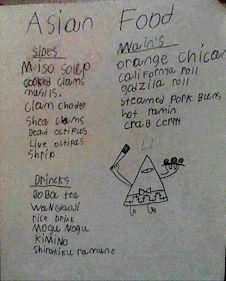 Asian Food
sides
Miso soup
cooked clams
musils.
clam choder
Shea clams
Dead octipus
Live octipus
Shrip
Drincks
BoBa tee
WaNGlaoji
rice Drink
MoGu NoGu
KiMiNo
Shirakiku ramune
Main's
orange chican
california roll
godzilla roll
steamed Pork Buns
hot ramin